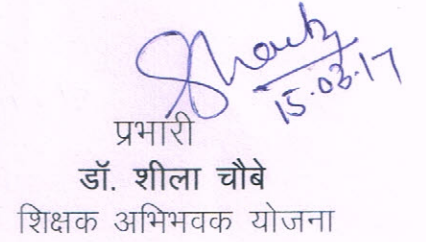 15.03.17
प्रभारी
डॉ. शीला चौबे
शिक्षक अभिभवक योजना